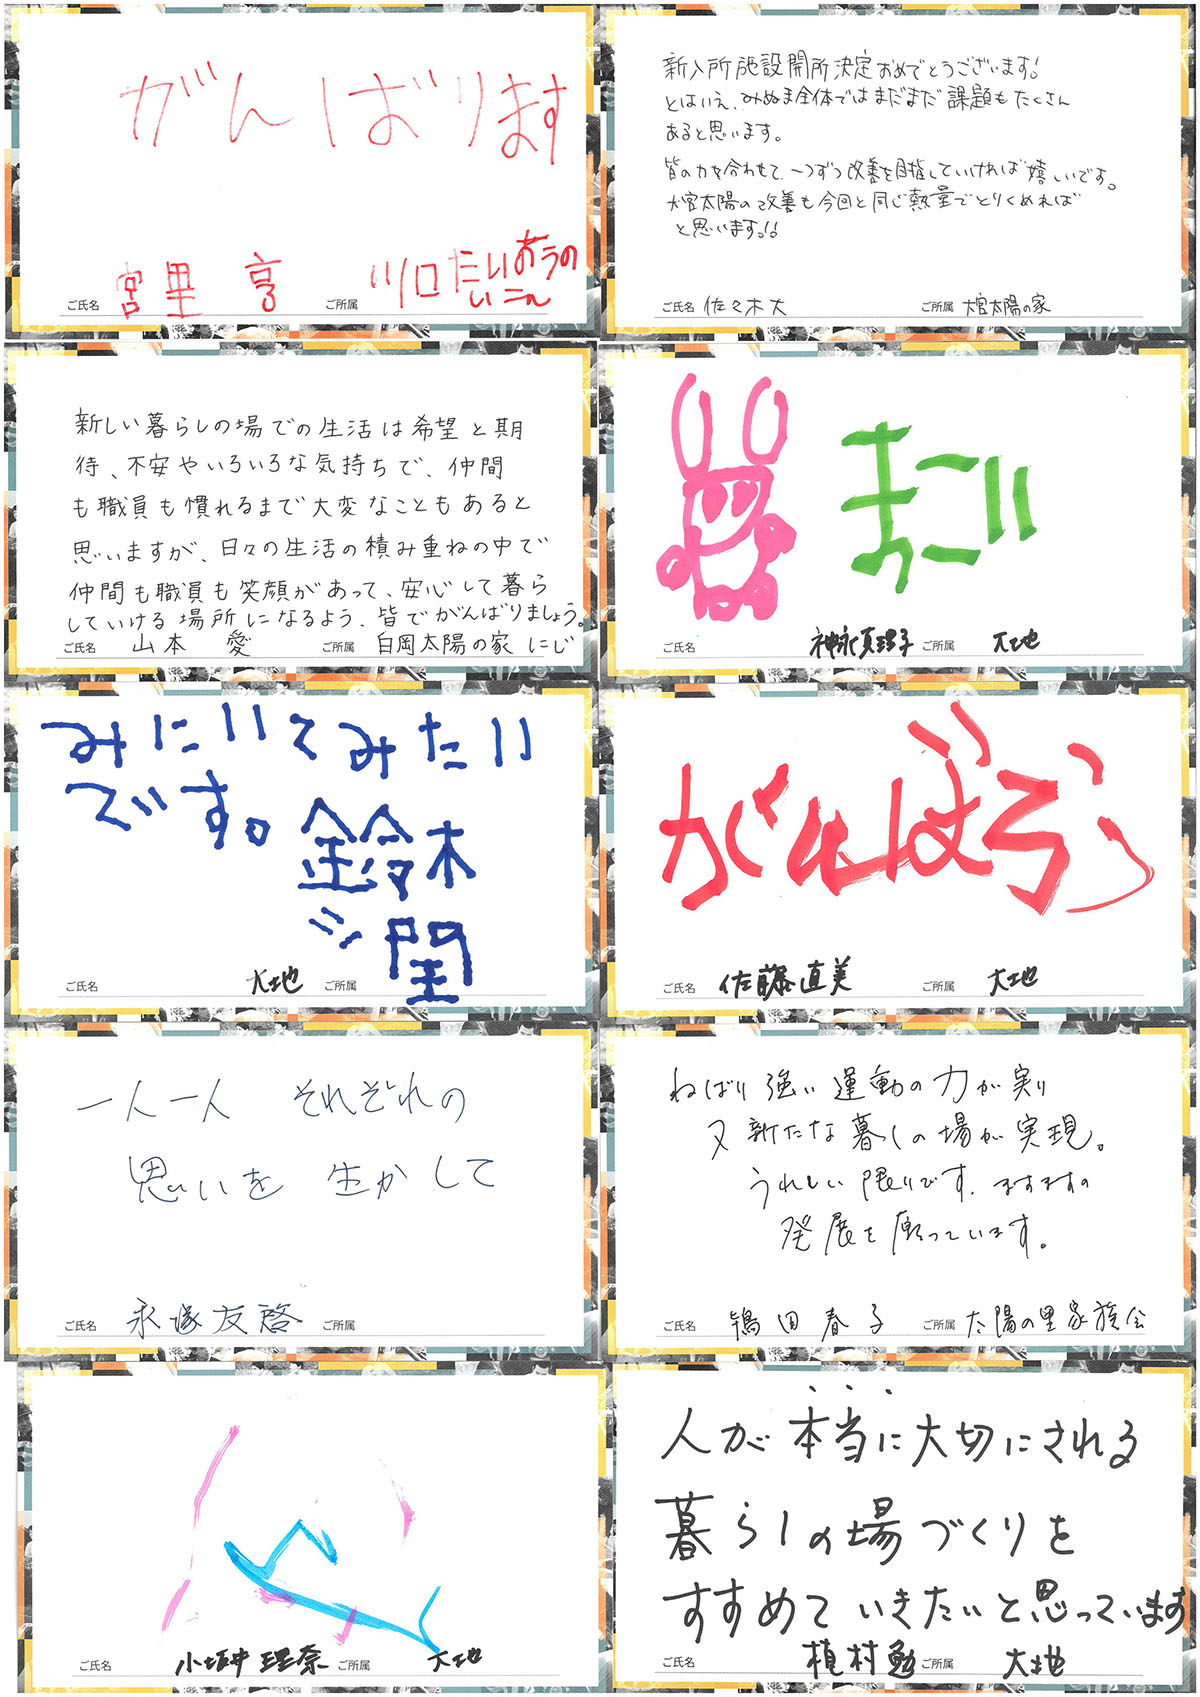 がんばります
ご氏名 宮里 亨 ご所属
新入所施設開所決定おめでとうございます!
とはいえ、みぬま全体ではまだまだ課題もたくさん
あると思います。
皆の力を合わせて、一つずつ改善を目指していければ嬉しいです。
大宮太陽の改善も今回と同じ熱量でとりくめれば
と思います。!!
ご氏名 佐々木大 ご所属 大宮太陽の家
新しい暮らしの場での生活は希望と期
待、不安やいろいろな気持ちで、仲間
も職員も慣れるまで大変なこともあると
思いますが、日々の生活の積み重ねの中で
仲間も職員も笑顔があって、安心して暮ら
していける場所になるよう、皆でがんばりましょう。
ご氏名 山本 愛 ご所属 白岡太陽の家 にじ
ご氏名 神永真理子 ご所属 大地
みにいてみたい
です。
鈴木
ご氏名 大地 ご所属
がんばろう
ご氏名 佐藤直美 ご所属 大地
一人一人 それぞれの
思いを 生かして
ご氏名 永塚友啓 ご所属
ねばり強い運動の力が実り
又新たな暮しの場が実現。
うれしい限りです。ますますの
発展を願っています。
ご氏名 鴇田春子 ご所属 太陽の里家族会
ご氏名 小坂井理奈 ご所属 大地
人が本当に大切にされる
暮らしの場づくりを
すすめていきたいと思っています
ご氏名 植村勉 ご所属 大地